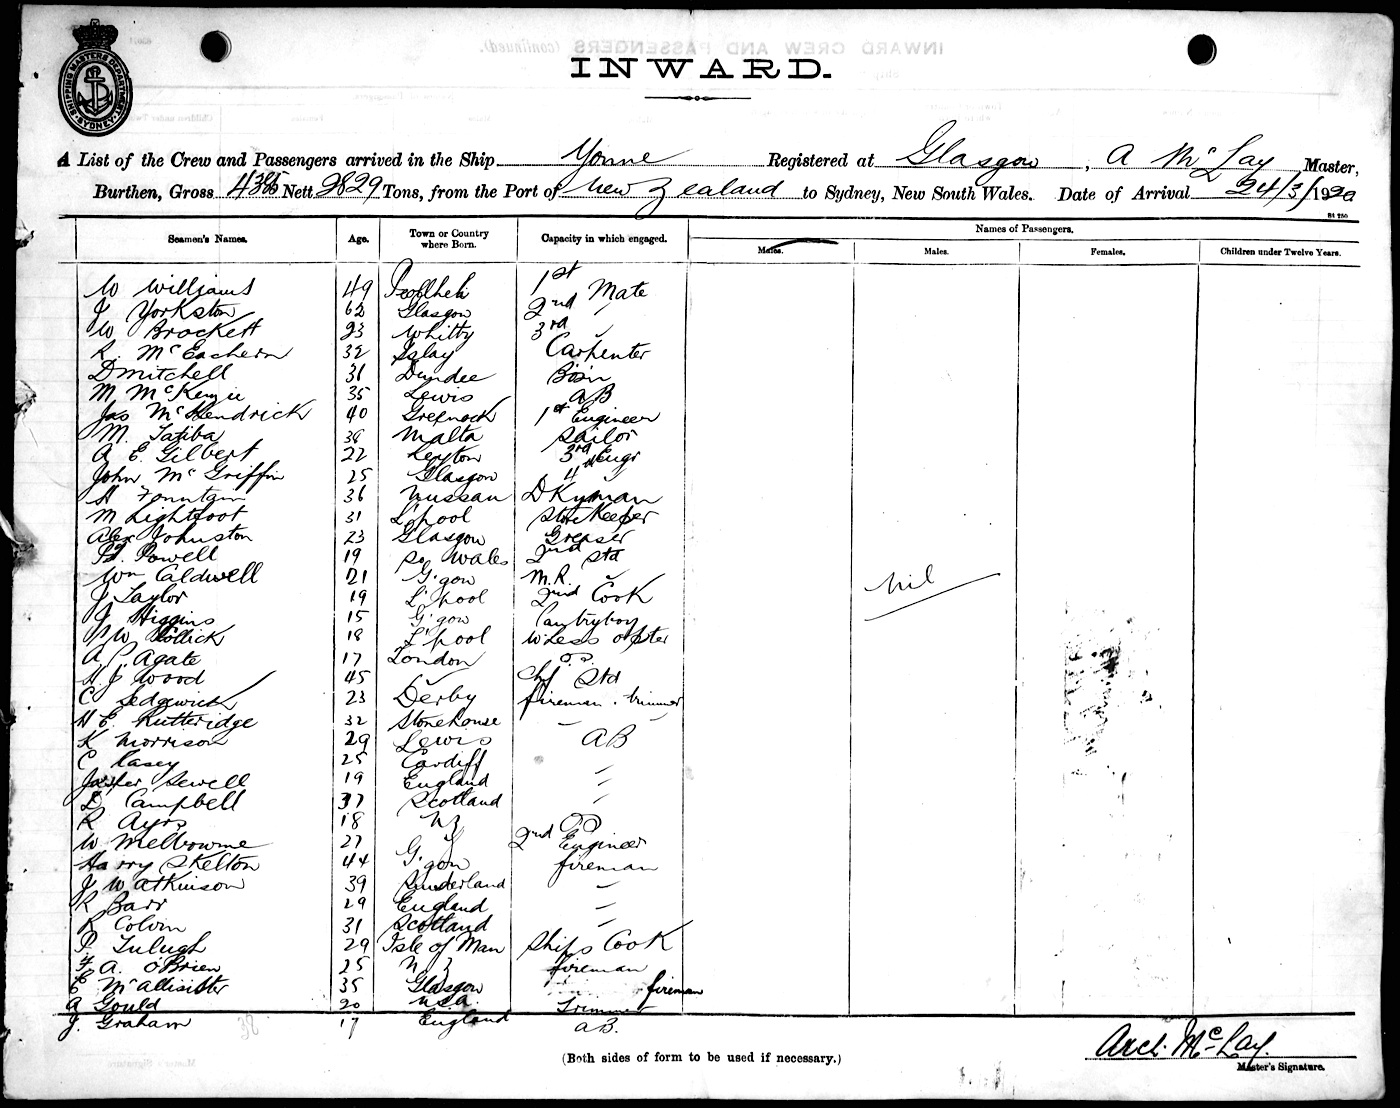 INWARD.
SHIPPING MASTERS DEPARTMENT SYDNEY
A List of the Crew and Passengers arrived in the Ship Yonne Registered at Glasgow, A McLay Master,
Burthen, Gross Nett 2829 Tons, from the Port of New Zealand to Sydney, New South Wales. Date of Arrival 24/3/1920
Seamen's Names. Age. Town or Country where Born. Capacity in which engaged. Names of Passengers.
Males. Males. Females. Children under Twelve Years.
W Williams 49 1st Mate
J Yorkston 62 Glasgow 2nd "
W Brockett 23 Whitby 3rd "
R. McEachern 32 Islay Carpenter
D Mitchell 31 Dundee Bosn
M McKenzie 35 Lewis AB
Jas McKendrick 40 Greenock 1st Engineer
M. 38 Malta Sailor
A E. Gilbert 22 Leyton 3rd Engr
John McGriffin 25 Glasgow 4th "
A Fountain 36 Nassau DKyman
M Lightfoot 31 L'pool Storekeeper
Alex Johnston 23 Glasgow Greaser
Powell 19 So Wales 2nd Std
Wm Caldwell 21 G'gow M.R.
J Taylor 19 L'pool 2nd Cook
J Higgins 15 G'gow Pantryboy
W 18 L'pool W'Less op'ter
A P. Agate 17 London
A. J Wood 45 " chf Std
C Sedgwick 23 Derby fireman & trimmer
H E. Rutteridge 32 Stonehouse "
K Morrison 29 Lewis AB
C Kasey 25 Cardiff "
Sewell 19 England "
D Campbell 37 Scotland "
R Ayrs 18 NZ OS
W Melbourne 27 " 2nd Engineer
Harry Skelton 44 G'gow fireman
J Watkinson 39 Sunderland "
R Barr 29 England "
R Colvin 31 Scotland "
P. 29 Isle of Man Ships Cook
F. A. O'Brien 25 NZ fireman
C McAllisister 35 Glasgow fireman
A Gould 20 USA. Trimmer
J. Graham 17 England AB.
Nil
38
(Both sides of form to be used if necessary.)
Arch. McLay.
Master's Signature.